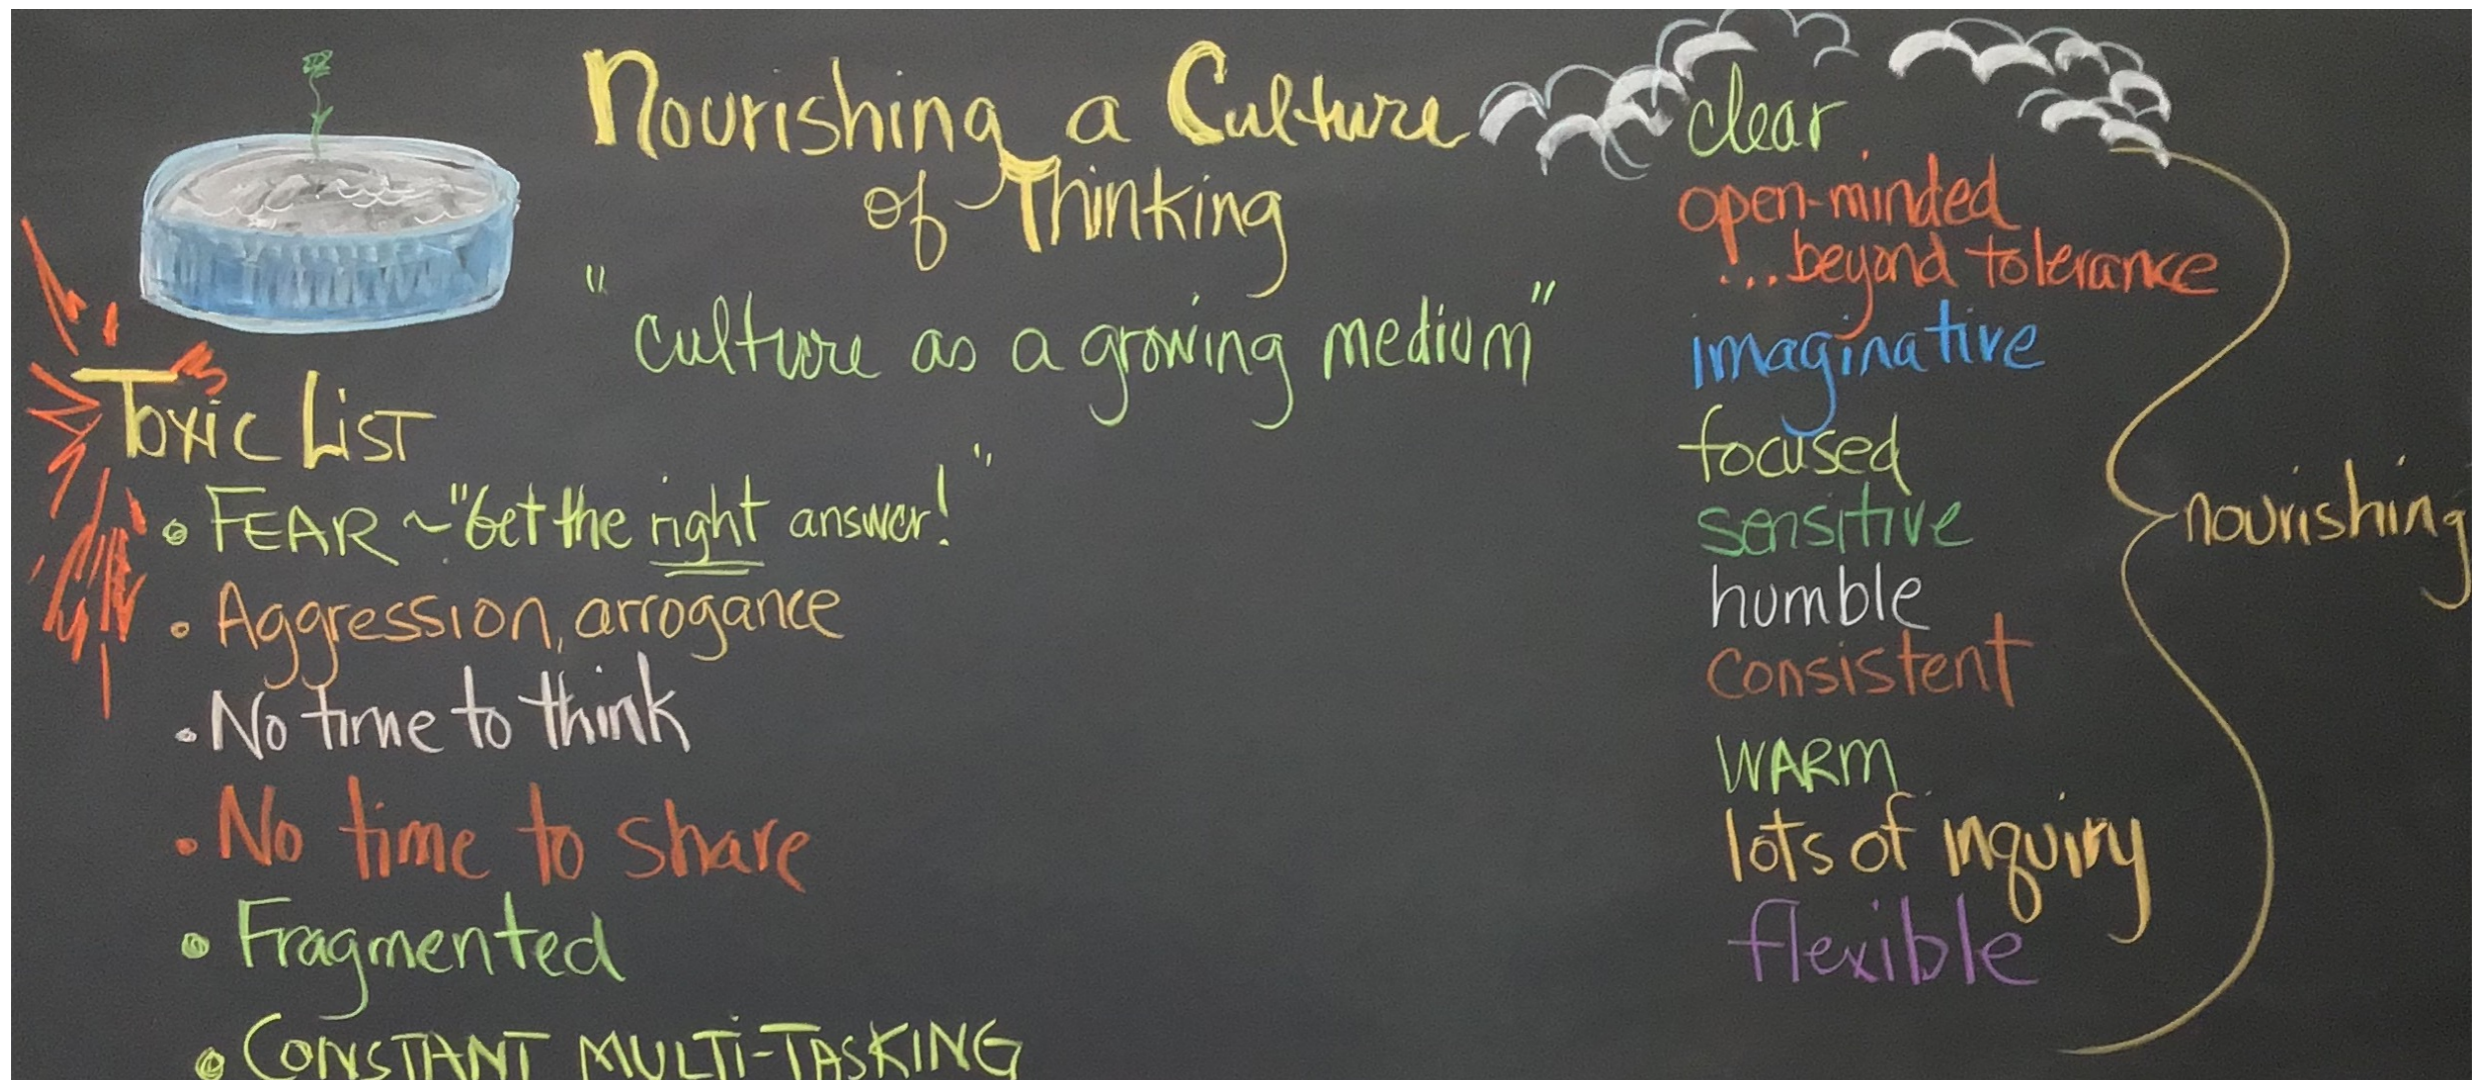 Nourishing a Culture
of Thinking
"culture as a growing medium"
Toxic List
• FEAR ~ "Get the right answer!"
• Aggression, arrogance
• No time to think
• No time to share
• Fragmented
• CONSTANT MULTI-TASKING
clear
open-minded
...beyond tolerance
imaginative
focused
sensitive
humble
consistent
WARM
lots of inquiry
flexible
nourishing